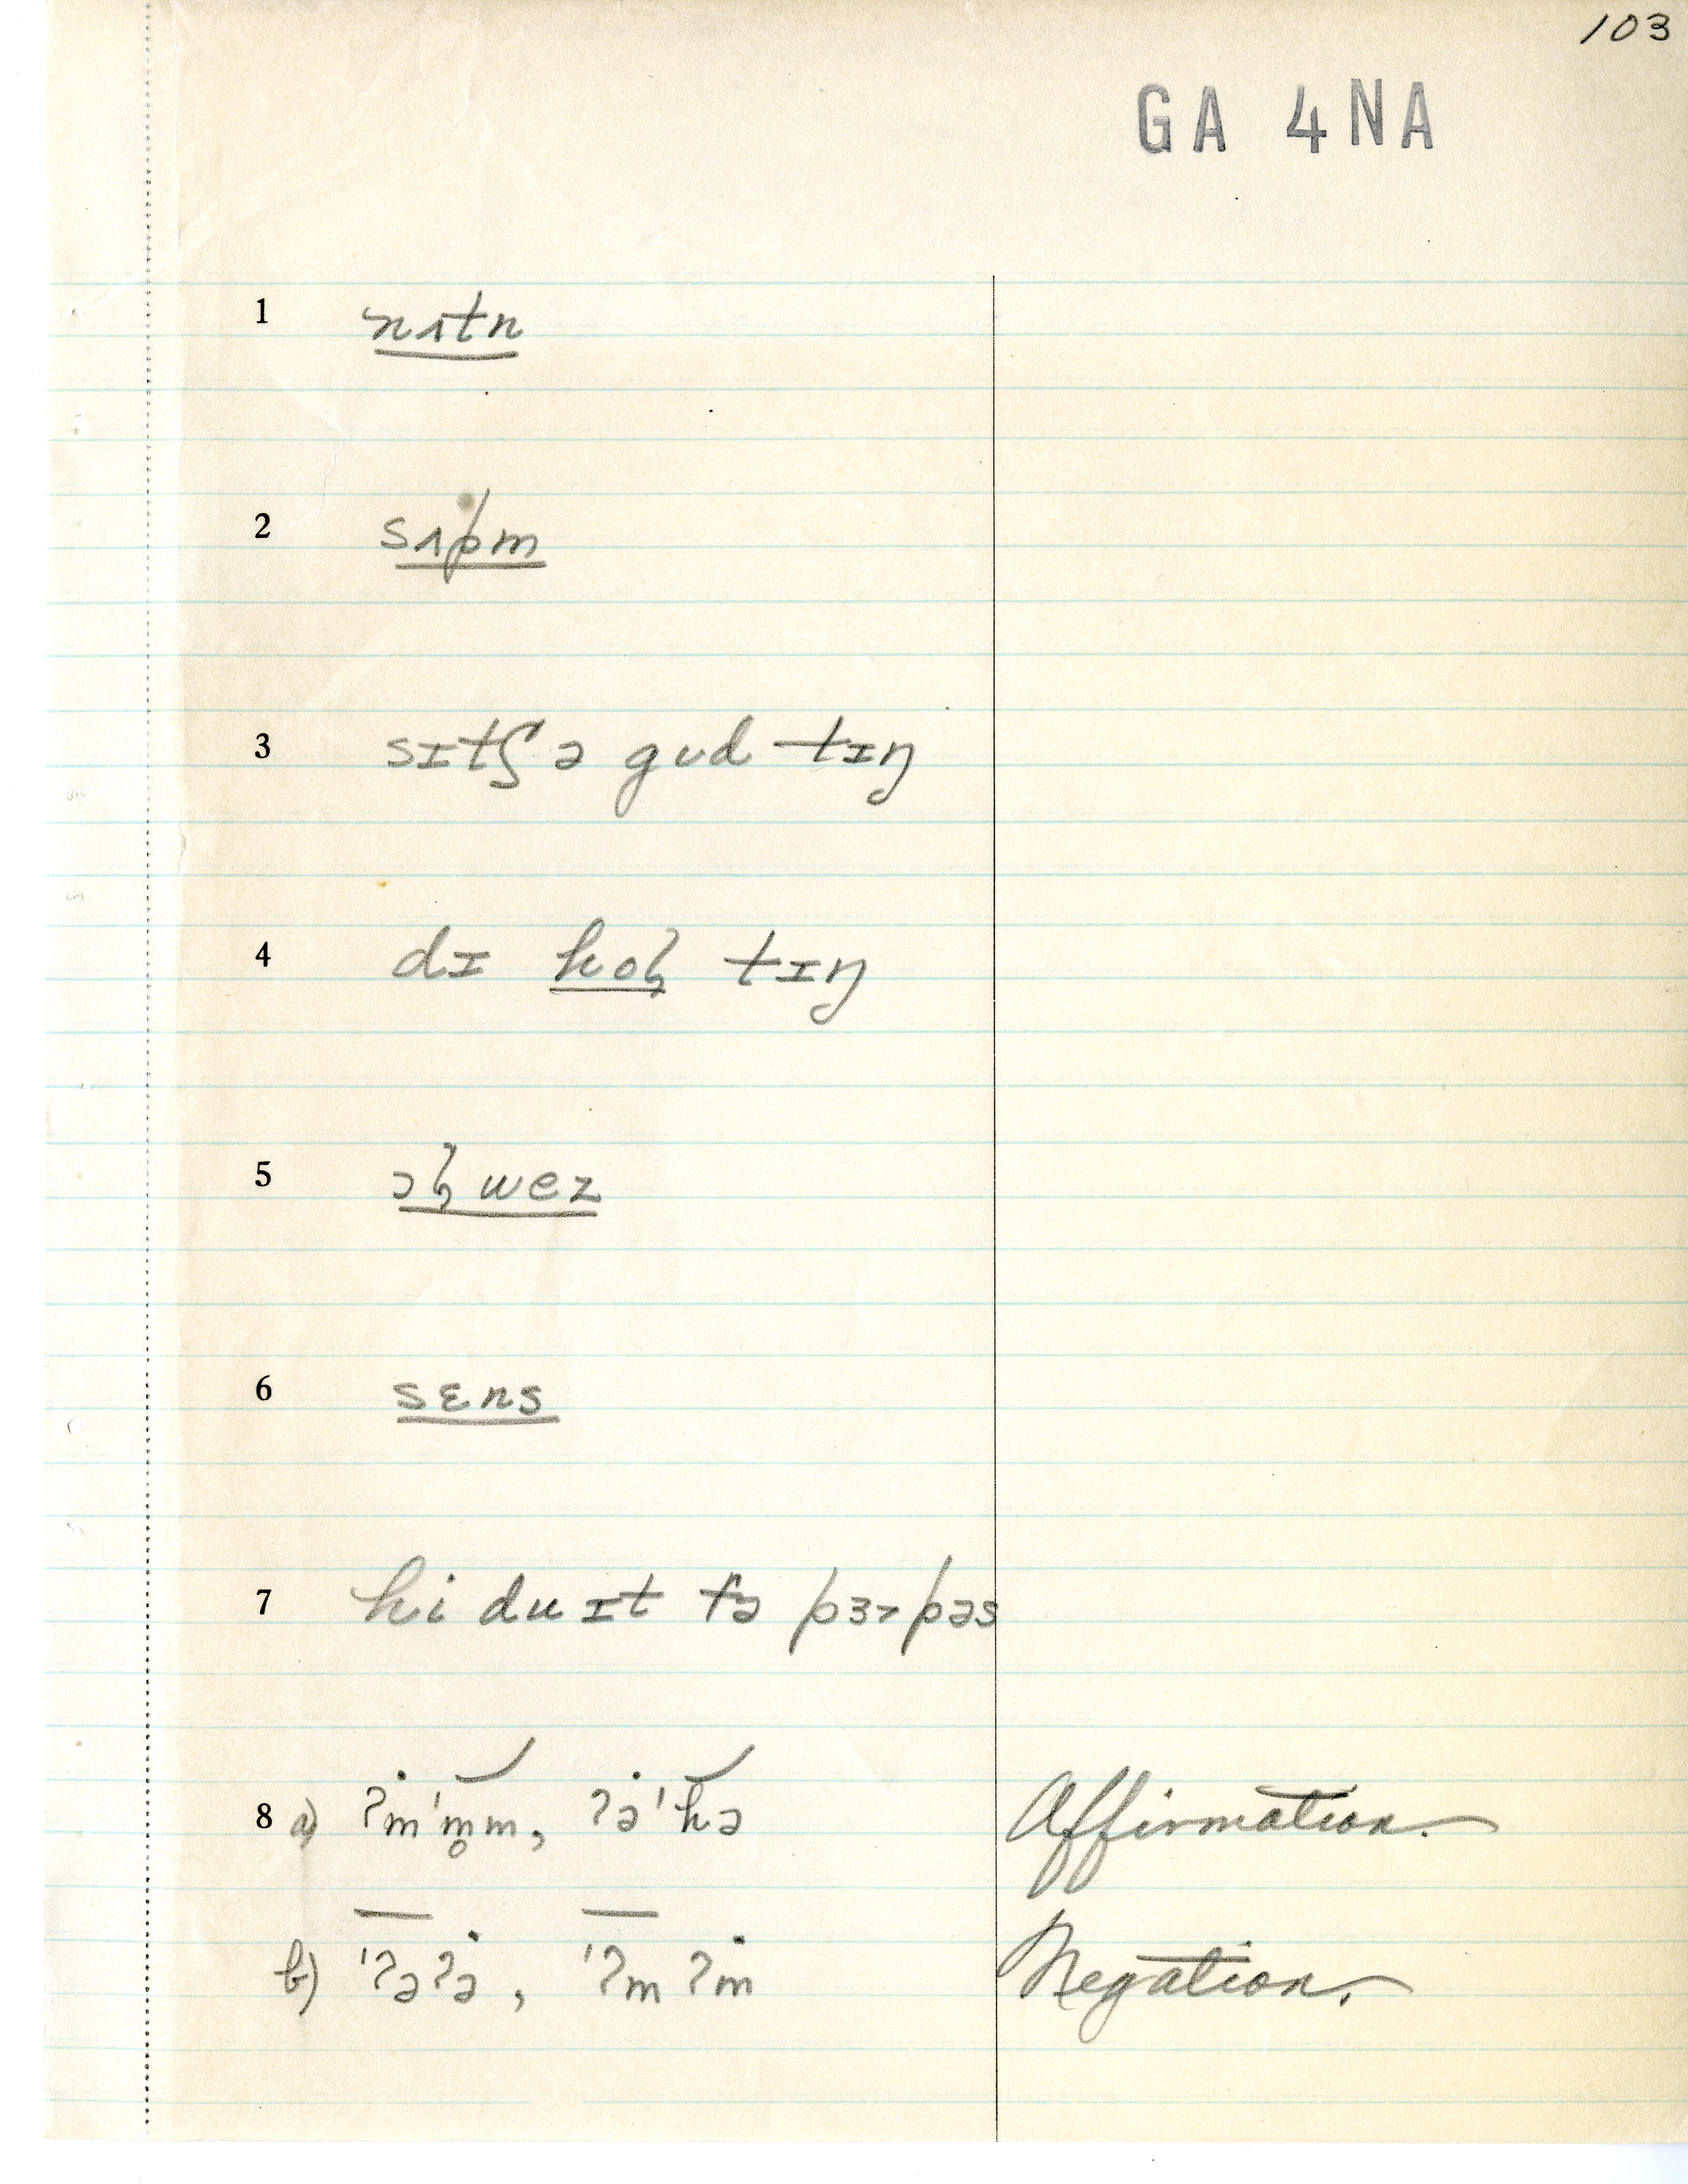 103
GA 4NA
1 nɪtn
2 sʌpm
3 sɪtʃ ə gud tɪŋ
4 dɪ hoɫ tɪŋ
5 ɔɫwez
6 sɛns
7 hi du ɪt fə pɜɚpəs
8 a) ʔm'm̥m, ʔə'hə Affirmation.
b) 'ʔəʔə, 'ʔmʔm Negation.